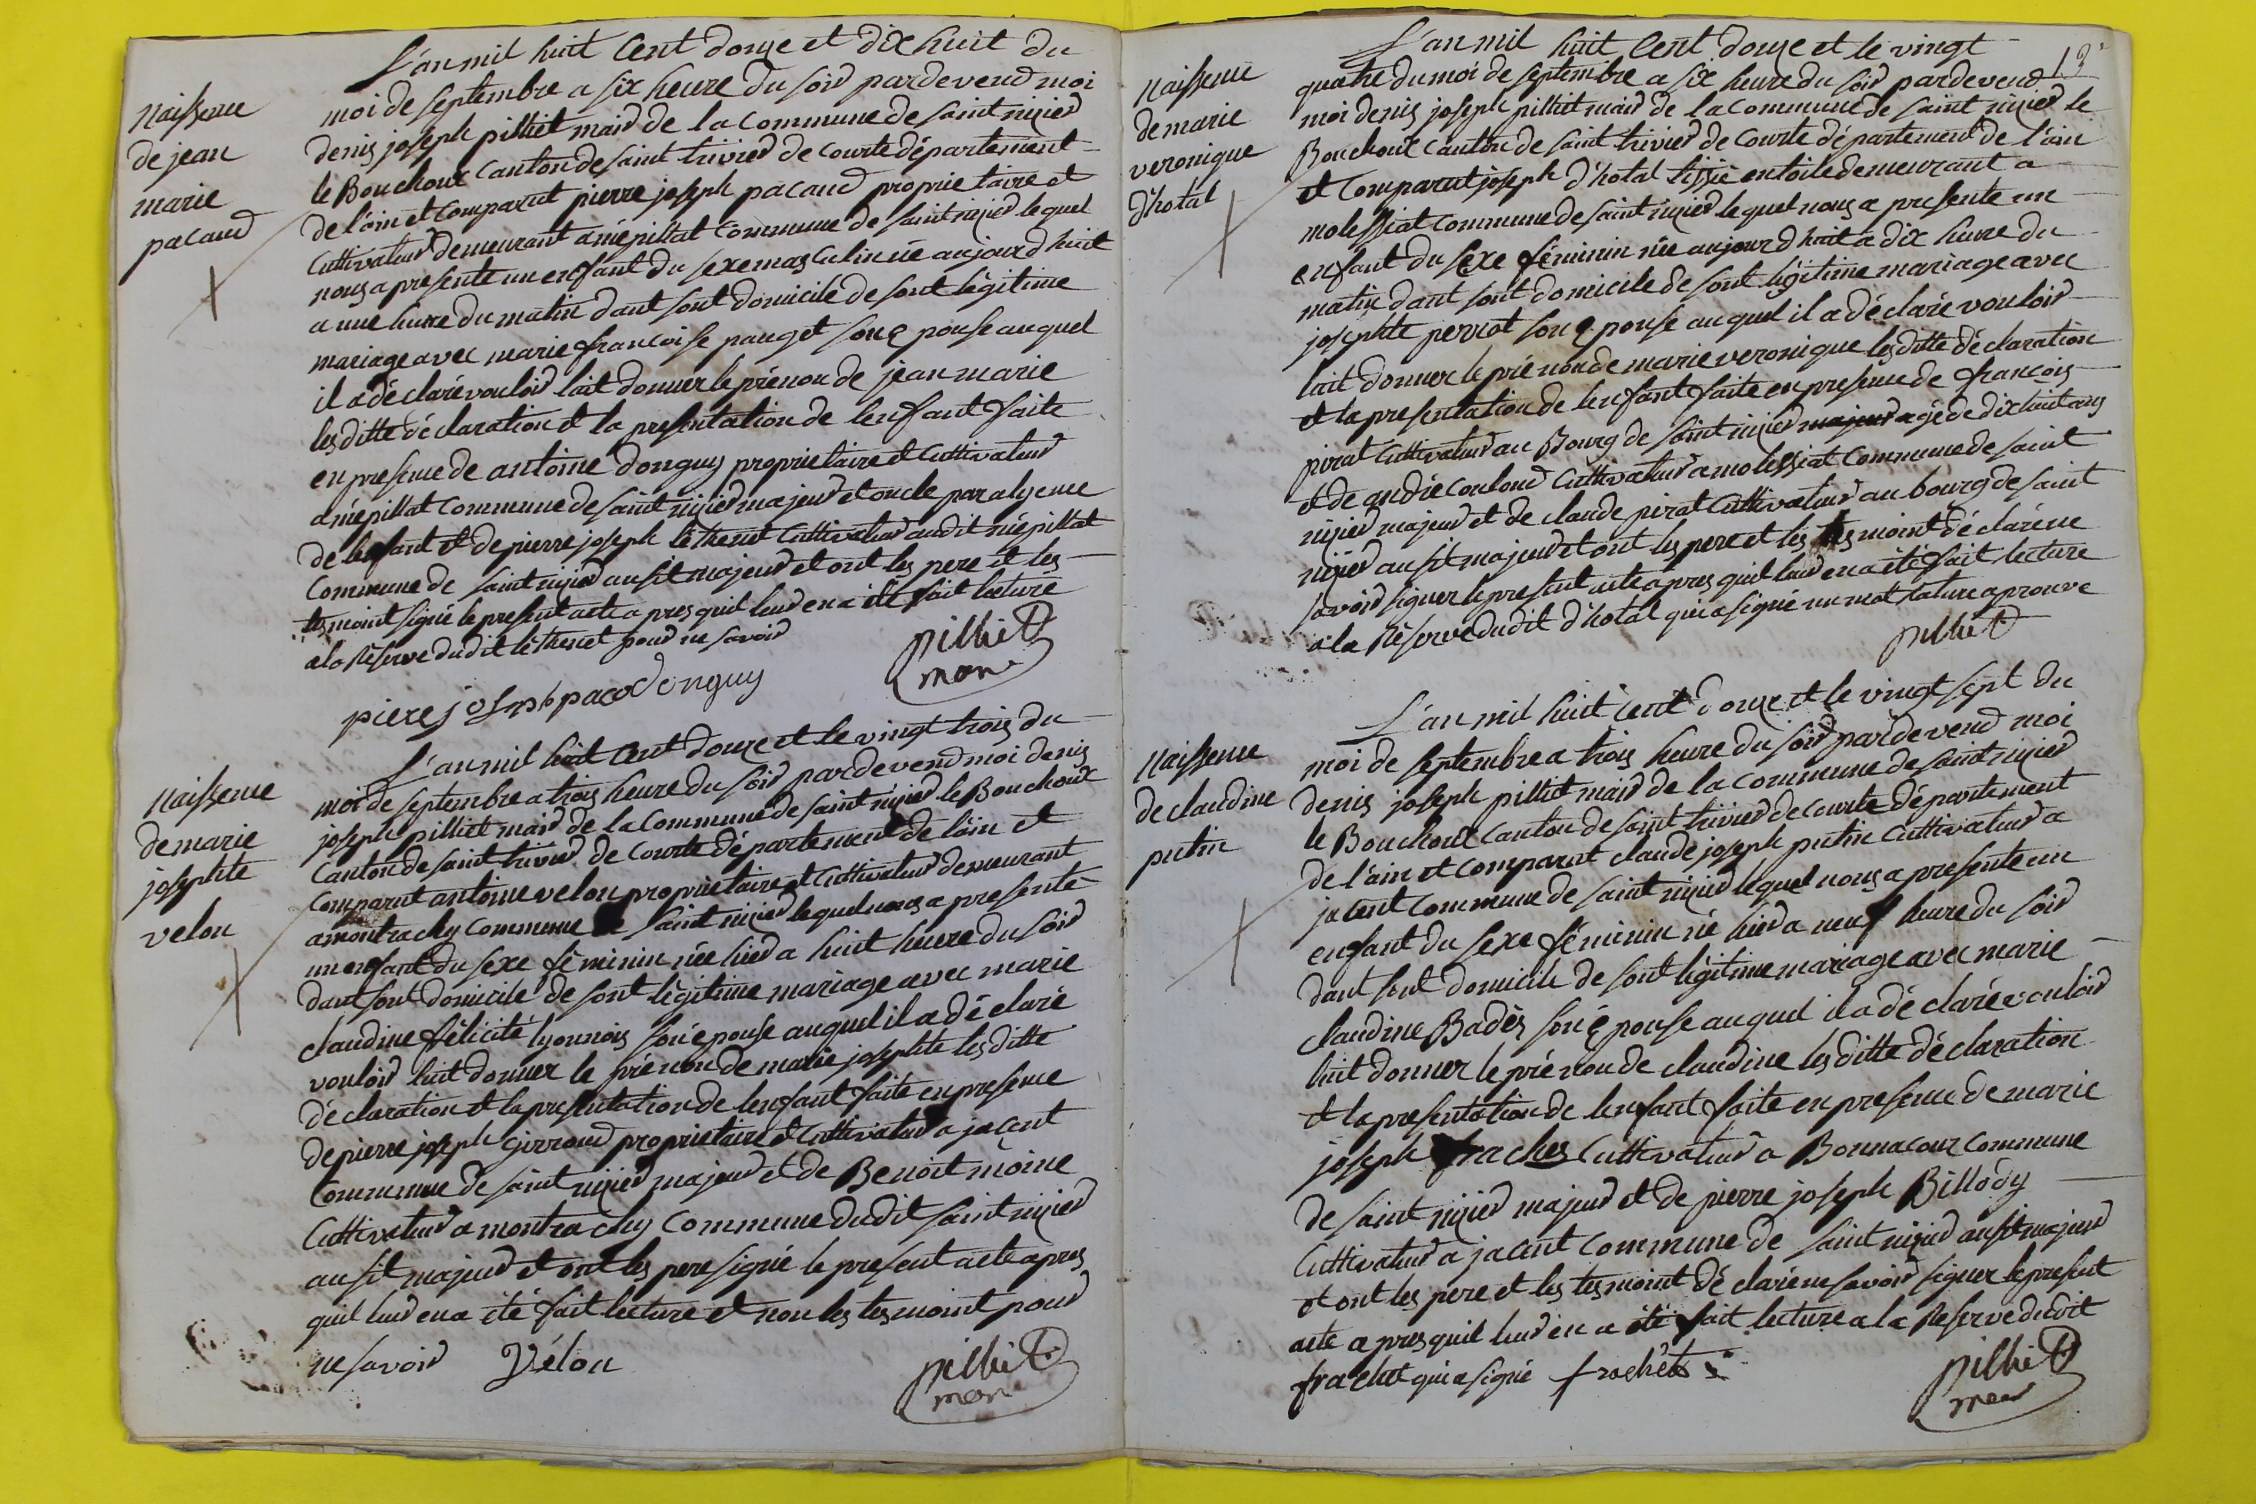 L'an mil huit Cent douze et dix huit du
Naissence
de jean
marie
pacaud
moi de septembre a six heure du soir pardevend moi
denis joseph pilliet mair de la Commune de saint nizier
le Bouchoux Canton de saint trivier de Courte département
de l'ain et Comparut pierre joseph pacaud proprietaire et
Cultivateur demeurant a mépillat Commune de saint nizier lequel
nous a presente un enfant du sexe masculin né aujourdhuit
a une heure du matin dant sont domicile de sont légitime
mariage avec marie francoise pauget son epouse auquel
il a déclaré vouloir lait donner le prénon de jean marie
lesditte déclaration et la presentation de lenfant faite
en presence de antoine donguy proprietaire et Cultivateur
a mépillat Commune de saint nizier majeur et oncle par alyence
de lenfant et de pierre joseph lethenet Cultivateur audit mépillat
Commune de saint nizier ausit majeur et ont les pere et les
tesmoint signé le present acte apres quil leur en a été fait lecture
a la Réserve dudit lethenet pour ne savoir
pilliet
mair
piere joseph pacod donguy
L'an mil huit Cent douze et le vingt trois du
Naissence
de marie
josephte
velon
moi de septembre a trois heure du soir pardevend moi denis
joseph pilliet mair de la Commune de saint nizier le Bouchoux
Canton de saint trivier de Courte département de l'ain et
Comparut antoine velon proprietaire et Cultivateur demeurant
a montrachy Commune de saint nizier lequel nous a presenté
un enfant du sexe féminin née hier a huit heure du soir
dant sont domicile de sont légitime mariage avec marie
claudine félicité lyonnois son épouse auquel il a déclaré
vouloir luit donner le prénon de marie josephte lesditte
déclaration et la presentation de lenfant faite en presence
de pierre joseph girroud proprietaire et Cultivateur a jacent
Commune de saint nizier majeur et de Benoit moine
Cultivateur a montrachy Commune dudit saint nizier
ausit majeur et ont les pere signé le present acte apres
quil leur en a été fait lecture et non les tesmoint pour
ne savoir Vélon
pilliet
mair
13
L'an mil huit Cent douze et le vingt
Naissence
de marie
veronique
d'hotal
quatre du moi de septembre a six heure du soir pardevend
moi denis joseph pilliet mair de la Commune de saint nizier le
Bouchoux Canton de saint trivier de Courte département de l'ain
et Comparut joseph d'hotal tissié en toile demeurant a
molessiat Commune de saint nizier lequel nous a presente un
enfant du sexe féminin née aujourdhuit a dix heure du
matin dant sont domicile de sont légitime mariage avec
josephte perrot son epouse auquel il a déclaré vouloir
lait donner le prénon de marie veronique lesditte déclaration
et la presentation de lenfant faite en presence de françois
pirat Cultivateur au Bourg de saint nizier majeur agé de dix huit ans
et de andré Couloud Cultivateur a molessiat Commune de saint
nizier majeur et de claude pirat Cultivateur au bourg de saint
nizier ausit majeur et ont les pere et les tesmoint déclaré ne
savoir signer le present acte apres quil leur en a été fait lecture
a la Réserve dudit d'hotal qui a signé un mot rature aprouve
pilliet
L'an mil huit Cent douze et le vingt sept du
Naissence
de claudine
putin
moi de septembre a trois heure du soir pardevend moi
denis joseph pilliet mair de la Commune de saint nizier
le Bouchoux Canton de saint trivier de Courte département
de l'ain et Comparut claude joseph putin Cultivateur a
jacent Commune de saint nizier lequel nous a presente un
enfant du sexe féminin né hier a neuf heure du soir
dant sont domicile de sont légitime mariage avec marie
claudine Badès son epouse auquel il a déclaré vouloir
luit donner le prénon de claudine lesditte déclaration
et la presentation de lenfant faite en presence de marie
joseph frachet Cultivateur a Bonnacour Commune
de saint nizier majeur et de pierre joseph Billody
Cultivateur a jacent Commune de saint nizier ausit majeur
et ont les pere et les tesmoint déclaré ne savoir signer le present
acte apres quil leur en a été fait lecture a la Reserve dudit
frachet qui a signé frachèt
pilliet
mair